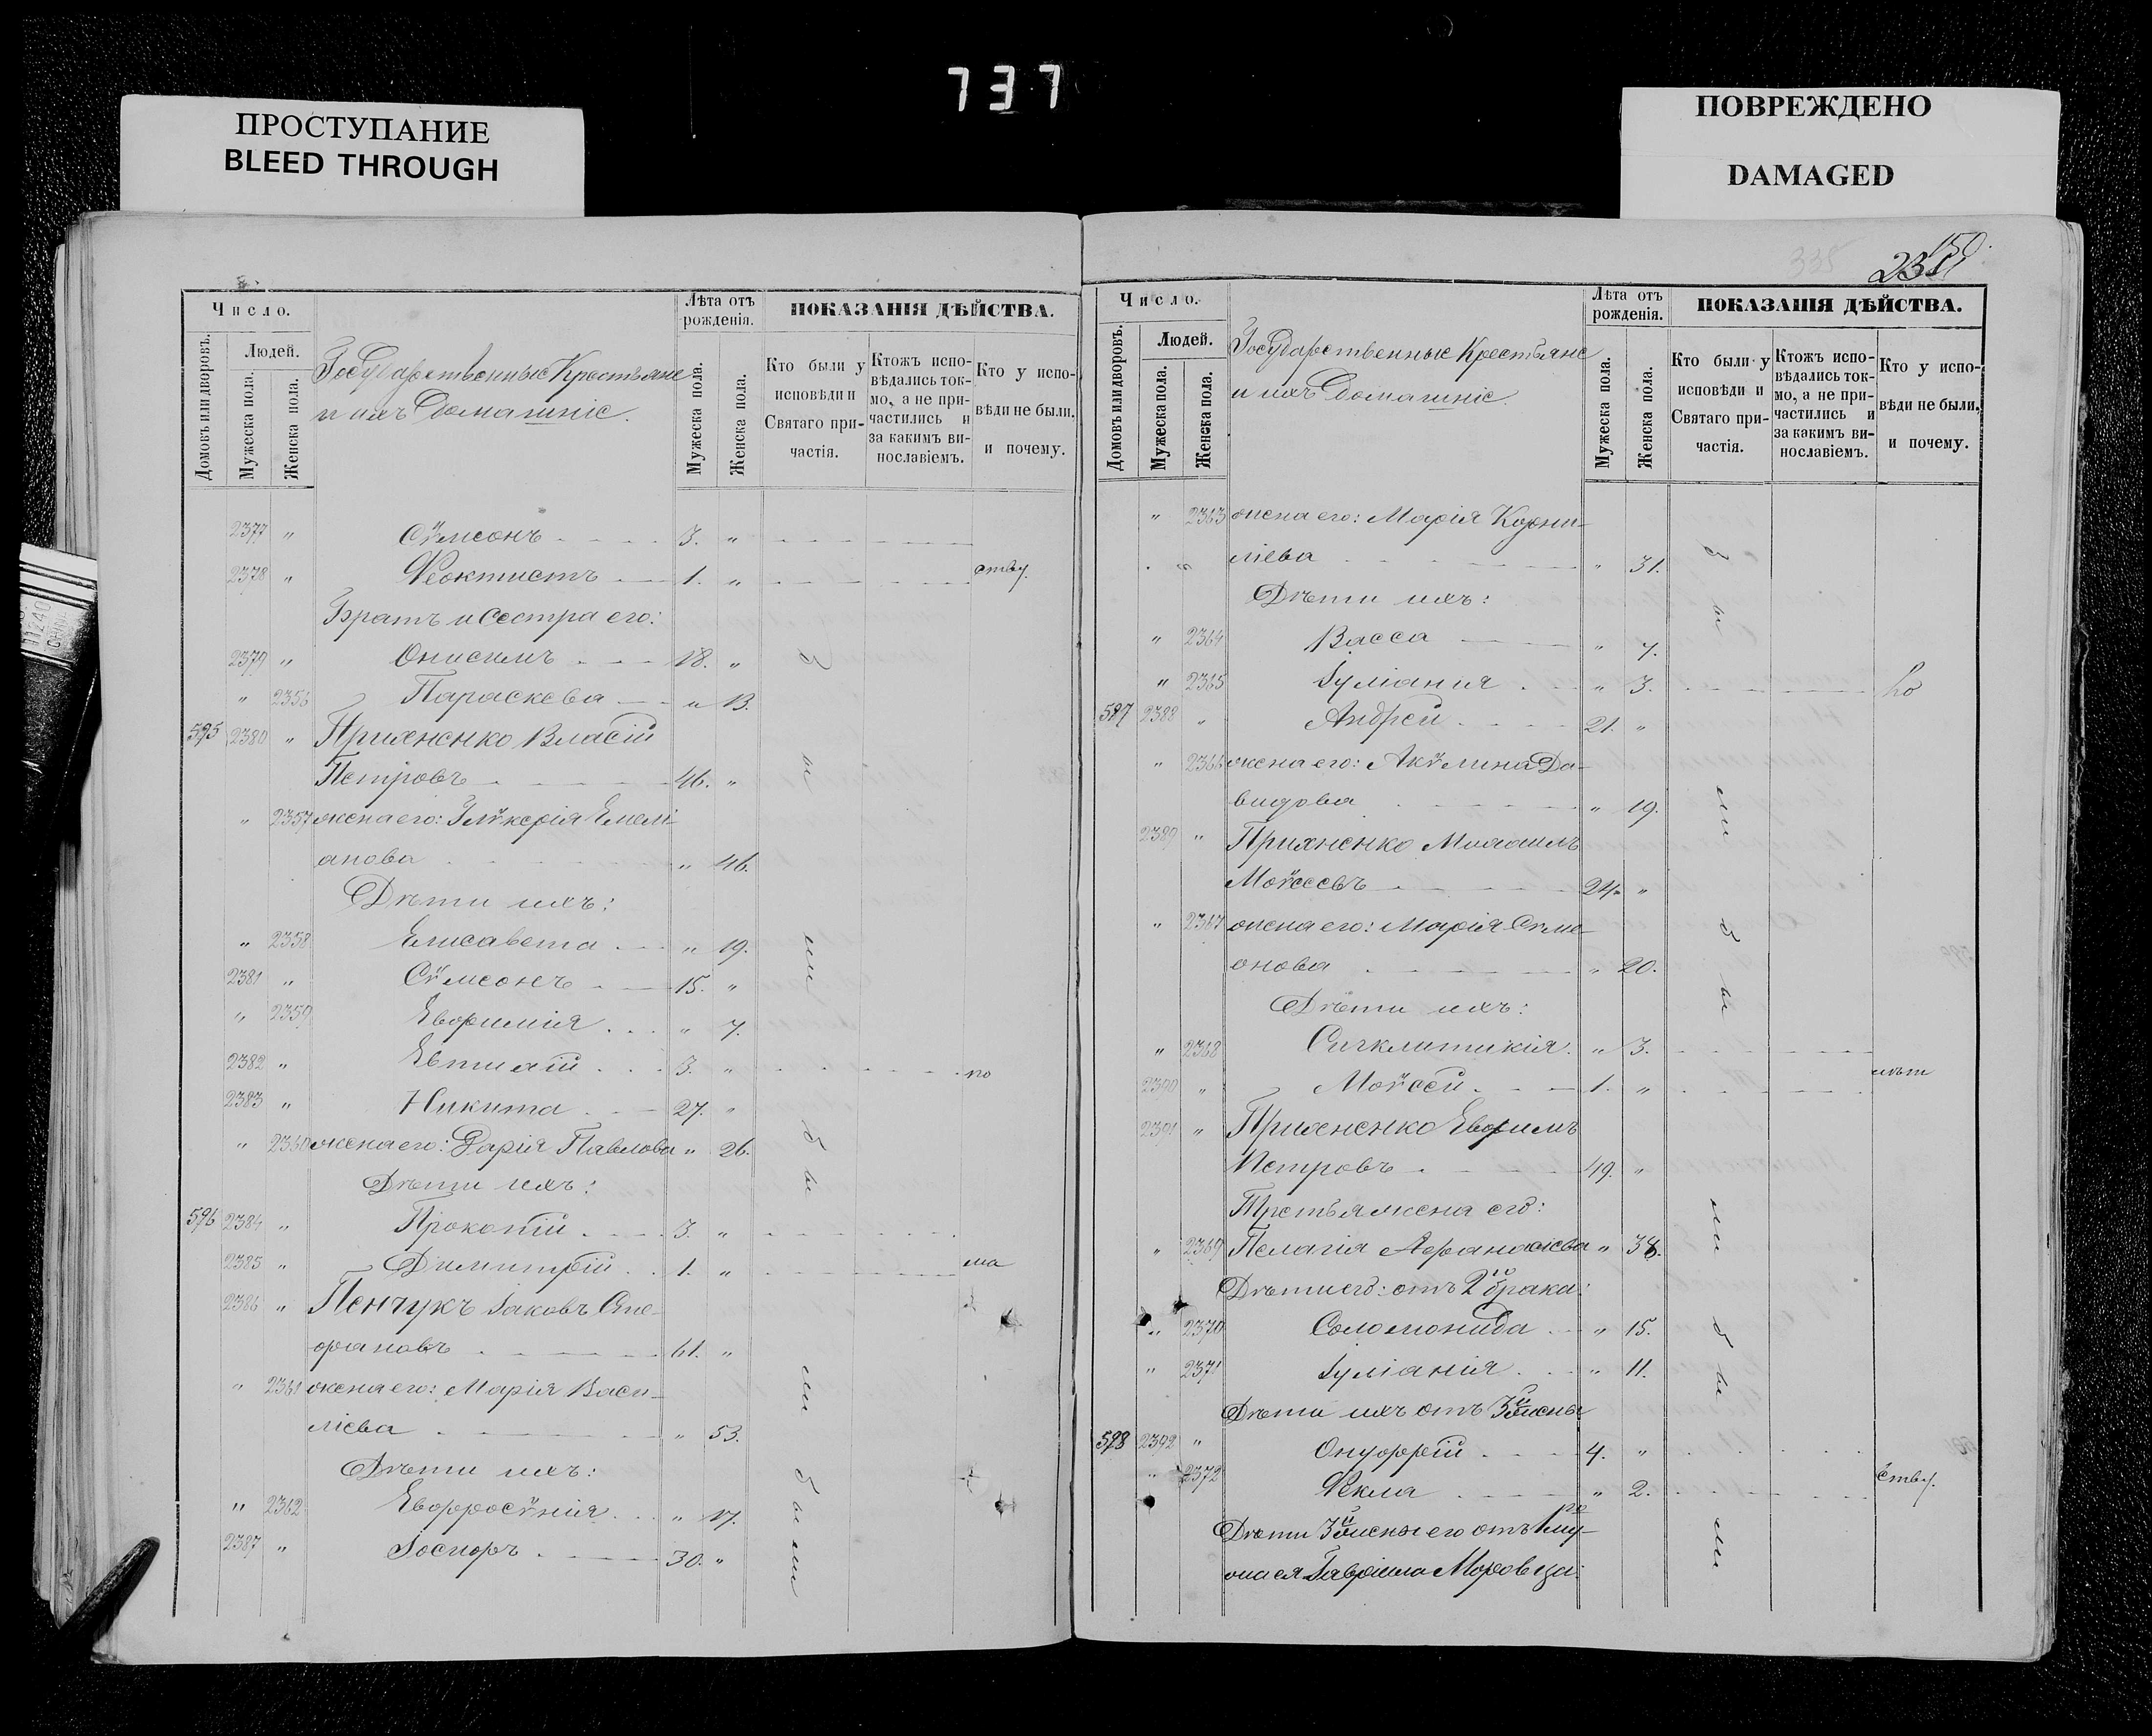 737
ПРОСТУПАНИЕ
BLEED THROUGH
ПОВРЕЖДЕНО
DAMAGED
Число.
Домовъ или дворовъ.
Людей.
Мужеска пола.
Женска пола.
Государственные Крестьяне
и ихъ Домашніе.
Лѣта отъ рожденія.
Мужеска пола.
Женска пола.
ПОКАЗАНІЯ ДѢЙСТВА.
Кто были у исповѣди и Святаго причастія.
Ктожъ исповѣдались токмо, а не причастились и за какимъ винославіемъ.
Кто у исповѣди не были. и почему.
2377 " Сѷмеонъ 3. "
2378 " Ѳеоктистъ 1. " ству.
Братъ и сестра его:
2379 " Онисимъ 18. "
" 2356 Параскева " 13.
595 2380 " Прихненко Власій
Петровъ 46. "
" 2357 жена его: Глѷкерія Емелі-
анова " 46.
Дѣти ихъ:
" 2358 Елисавета " 19.
2381 " Сѷмеонъ 15. "
" 2359 Евфимія " 7.
2382 " Евтихій 3. " по
2383 " Никита 27. "
" 2360 жена его: Дарія Павлова " 26.
Дѣти ихъ:
596 2384 " Прокопій 3. "
2385 " Димитрій 1. " ма
2386 " Пенчукъ Іаковъ Сте-
фановъ 61. "
" 2361 жена его: Марія Васи-
ліева " 53.
Дѣти ихъ:
" 2362 Евфросѷнія " 17.
2387 " Іосифъ 30. "
335
150.
Число.
Домовъ или дворовъ.
Людей.
Мужеска пола.
Женска пола.
Государственные Крестьяне
и ихъ Домашніе.
Лѣта отъ рожденія.
Мужеска пола.
Женска пола.
ПОКАЗАНІЯ ДѢЙСТВА.
Кто были у исповѣди и Святаго причастія.
Ктожъ исповѣдались токмо, а не причастились и за какимъ винославіемъ.
Кто у исповѣди не были, и почему.
" 2363 жена его: Марія Корни-
ліева " 31.
Дѣти ихъ:
" 2364 Васса " 7.
" 2365 Іуліанія " 3. по
597 2388 " Андрей 21. "
" 2366 жена его: Акѷлина Да-
видова " 19.
2389 " Прихненко Михаилъ
Моѷсеевъ 24. "
" 2367 жена его: Марія Симе-
онова " 20.
Дѣти ихъ:
" 2368 Сигклитикія " 3.
2390 " Моѷсей 1. " лѣт
2391 " Прихненко Евфимъ
Петровъ 49. "
Третья жена его:
" 2369 Пелагія Афанасіева " 38.
Дѣти его: отъ 2го брака:
" 2370 Соломонида " 15.
" 2371 Іуліанія " 11.
Дѣти ихъ отъ 3й жены
598 2392 " Онуфрій 4. "
" 2372 Ѳекла " 2. ству.
Дѣти 3й жены его отъ 1го му-
жа ея Гавріила Моровца: